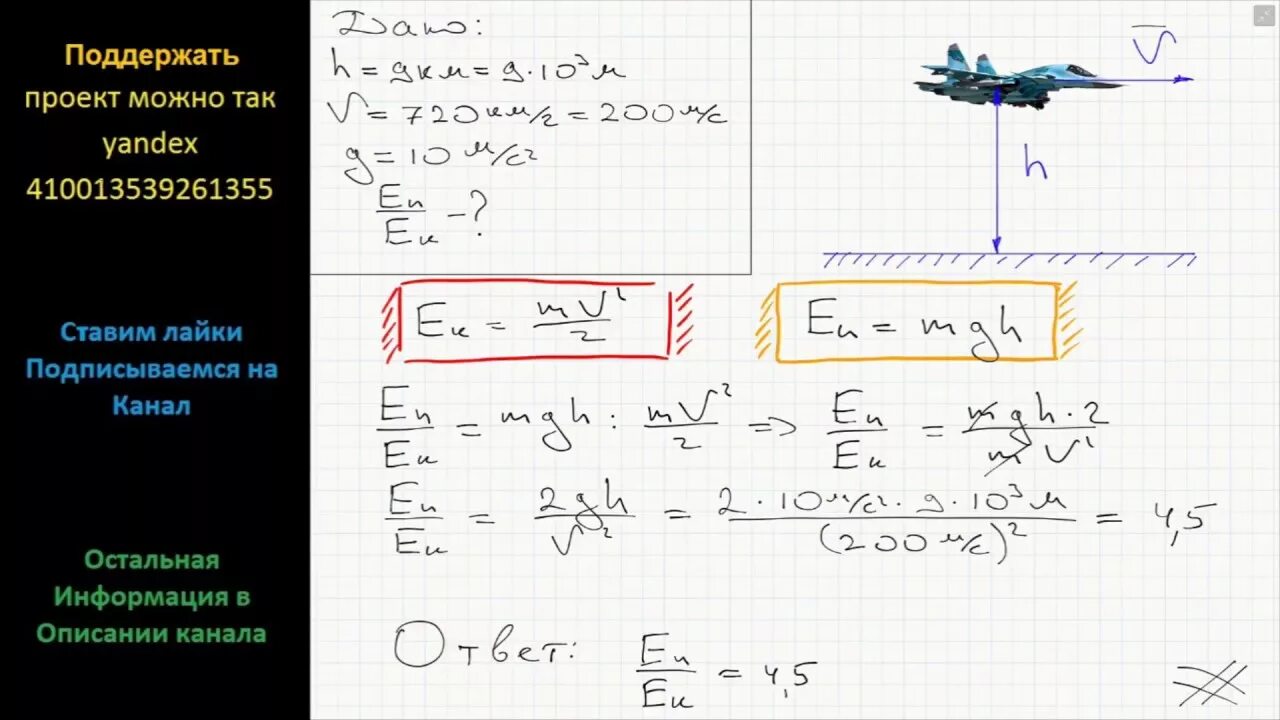 Поддержать
проект можно так
yandex
410013539261355
Ставим лайки
Подписываемся на
Канал
Остальная
Информация в
Описании канала
Дано:
h = 9 км = 9·10³ м
V = 720 км/г = 200 м/с
g = 10 м/с²
Eп/Eк - ?
V
h
Eк = mV²/2
Eп = mgh
Eп/Eк = mgh : mV²/2 => Eп/Eк = mgh·2/mV²
Eп/Eк = 2gh/V² = 2·10 м/с²·9·10³ м/(200 м/с)² = 4,5
Ответ: Eп/Eк = 4,5